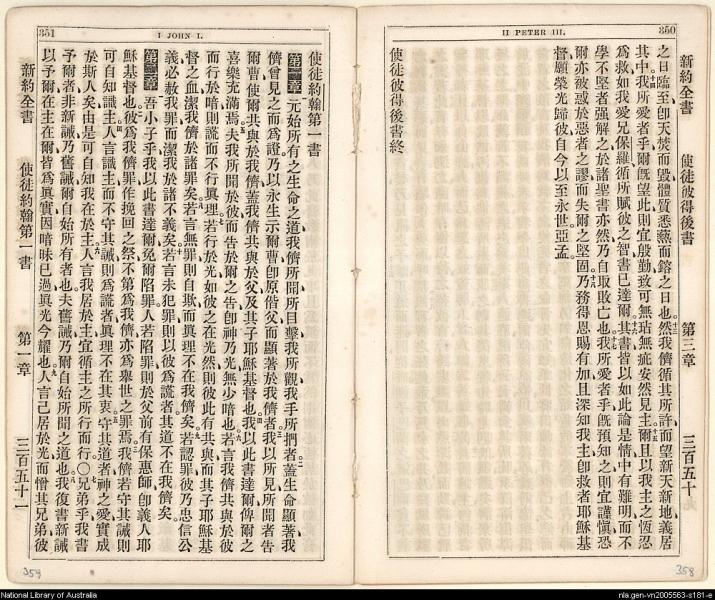 II PETER III.
350
新約全書
使徒彼得後書
第三章
三百五十
之日臨至卽天焚而毀體質悉爇而鎔之日也十三然我儕循其所許而望新天新地義居
其中十四我所愛者乎爾旣望此則宜殷勤致可無玷無疵安然見主十五爾且以我主之恆忍
爲救如我愛兄保羅循所賦彼之智書已達爾十六其書皆以如此論是情中有難明而不
學不堅者强解之於諸聖書亦然乃自取敗亡也十七我所愛者乎旣預知之則宜謹愼恐
爾亦被惑於惡者之謬而失爾之堅固十八乃務得恩賜有加且深知我主卽救者耶穌基
督願榮光歸彼自今以至永世亞孟
使徒彼得後書終
351
I JOHN I.
使徒約翰第一書
第一章 元始所有之生命之道我儕所聞所目擊我所觀我手所捫者二蓋生命顯著我
儕曾見之而爲證乃以永生示爾曹卽原偕父而顯著於我儕者三我以所見所聞者告
爾曹使爾共與於我儕蓋我儕共與於父及其子耶穌基督也四我以此書達爾俾爾之
喜樂充滿焉五夫我所聞於彼而告於爾之告卽神乃光無少暗也六若言我儕共與於彼
而行於暗則謊而不行眞理七若行於光如彼之在光然則彼此有共與而其子耶穌基
督之血潔我儕於諸罪矣八若言無罪則自欺而眞理不在我儕矣九若認罪彼乃忠信公
義必赦我罪而潔我於諸不義矣十若言未犯罪則以彼爲謊者其道不在我儕矣
第二章 吾小子乎我以此書達爾免爾陷罪人若陷罪則於父前有保惠師卽義人耶
穌基督也二彼爲我儕罪作挽回之祭不第爲我儕亦爲舉世之罪焉三我儕若守其誡則
可自知識主四人言識主而不守其誡則爲謊者眞理不在其衷五守其道者神之愛實成
於斯人矣由是可自知我在於主六人言我居於主宜循主之所行而行○七兄弟乎我書
予爾者非新誡乃舊誡爾自始所有者也夫舊誡乃爾自始所聞之道也八我復書新誡
以予爾在主在爾皆爲眞實因暗昧已過眞光今耀也九人言己居於光而憎其兄弟彼
新約全書
使徒約翰第一書
第一章
三百五十一
359
358
National Library of Australia
nla.gen-vn2005563-s181-e